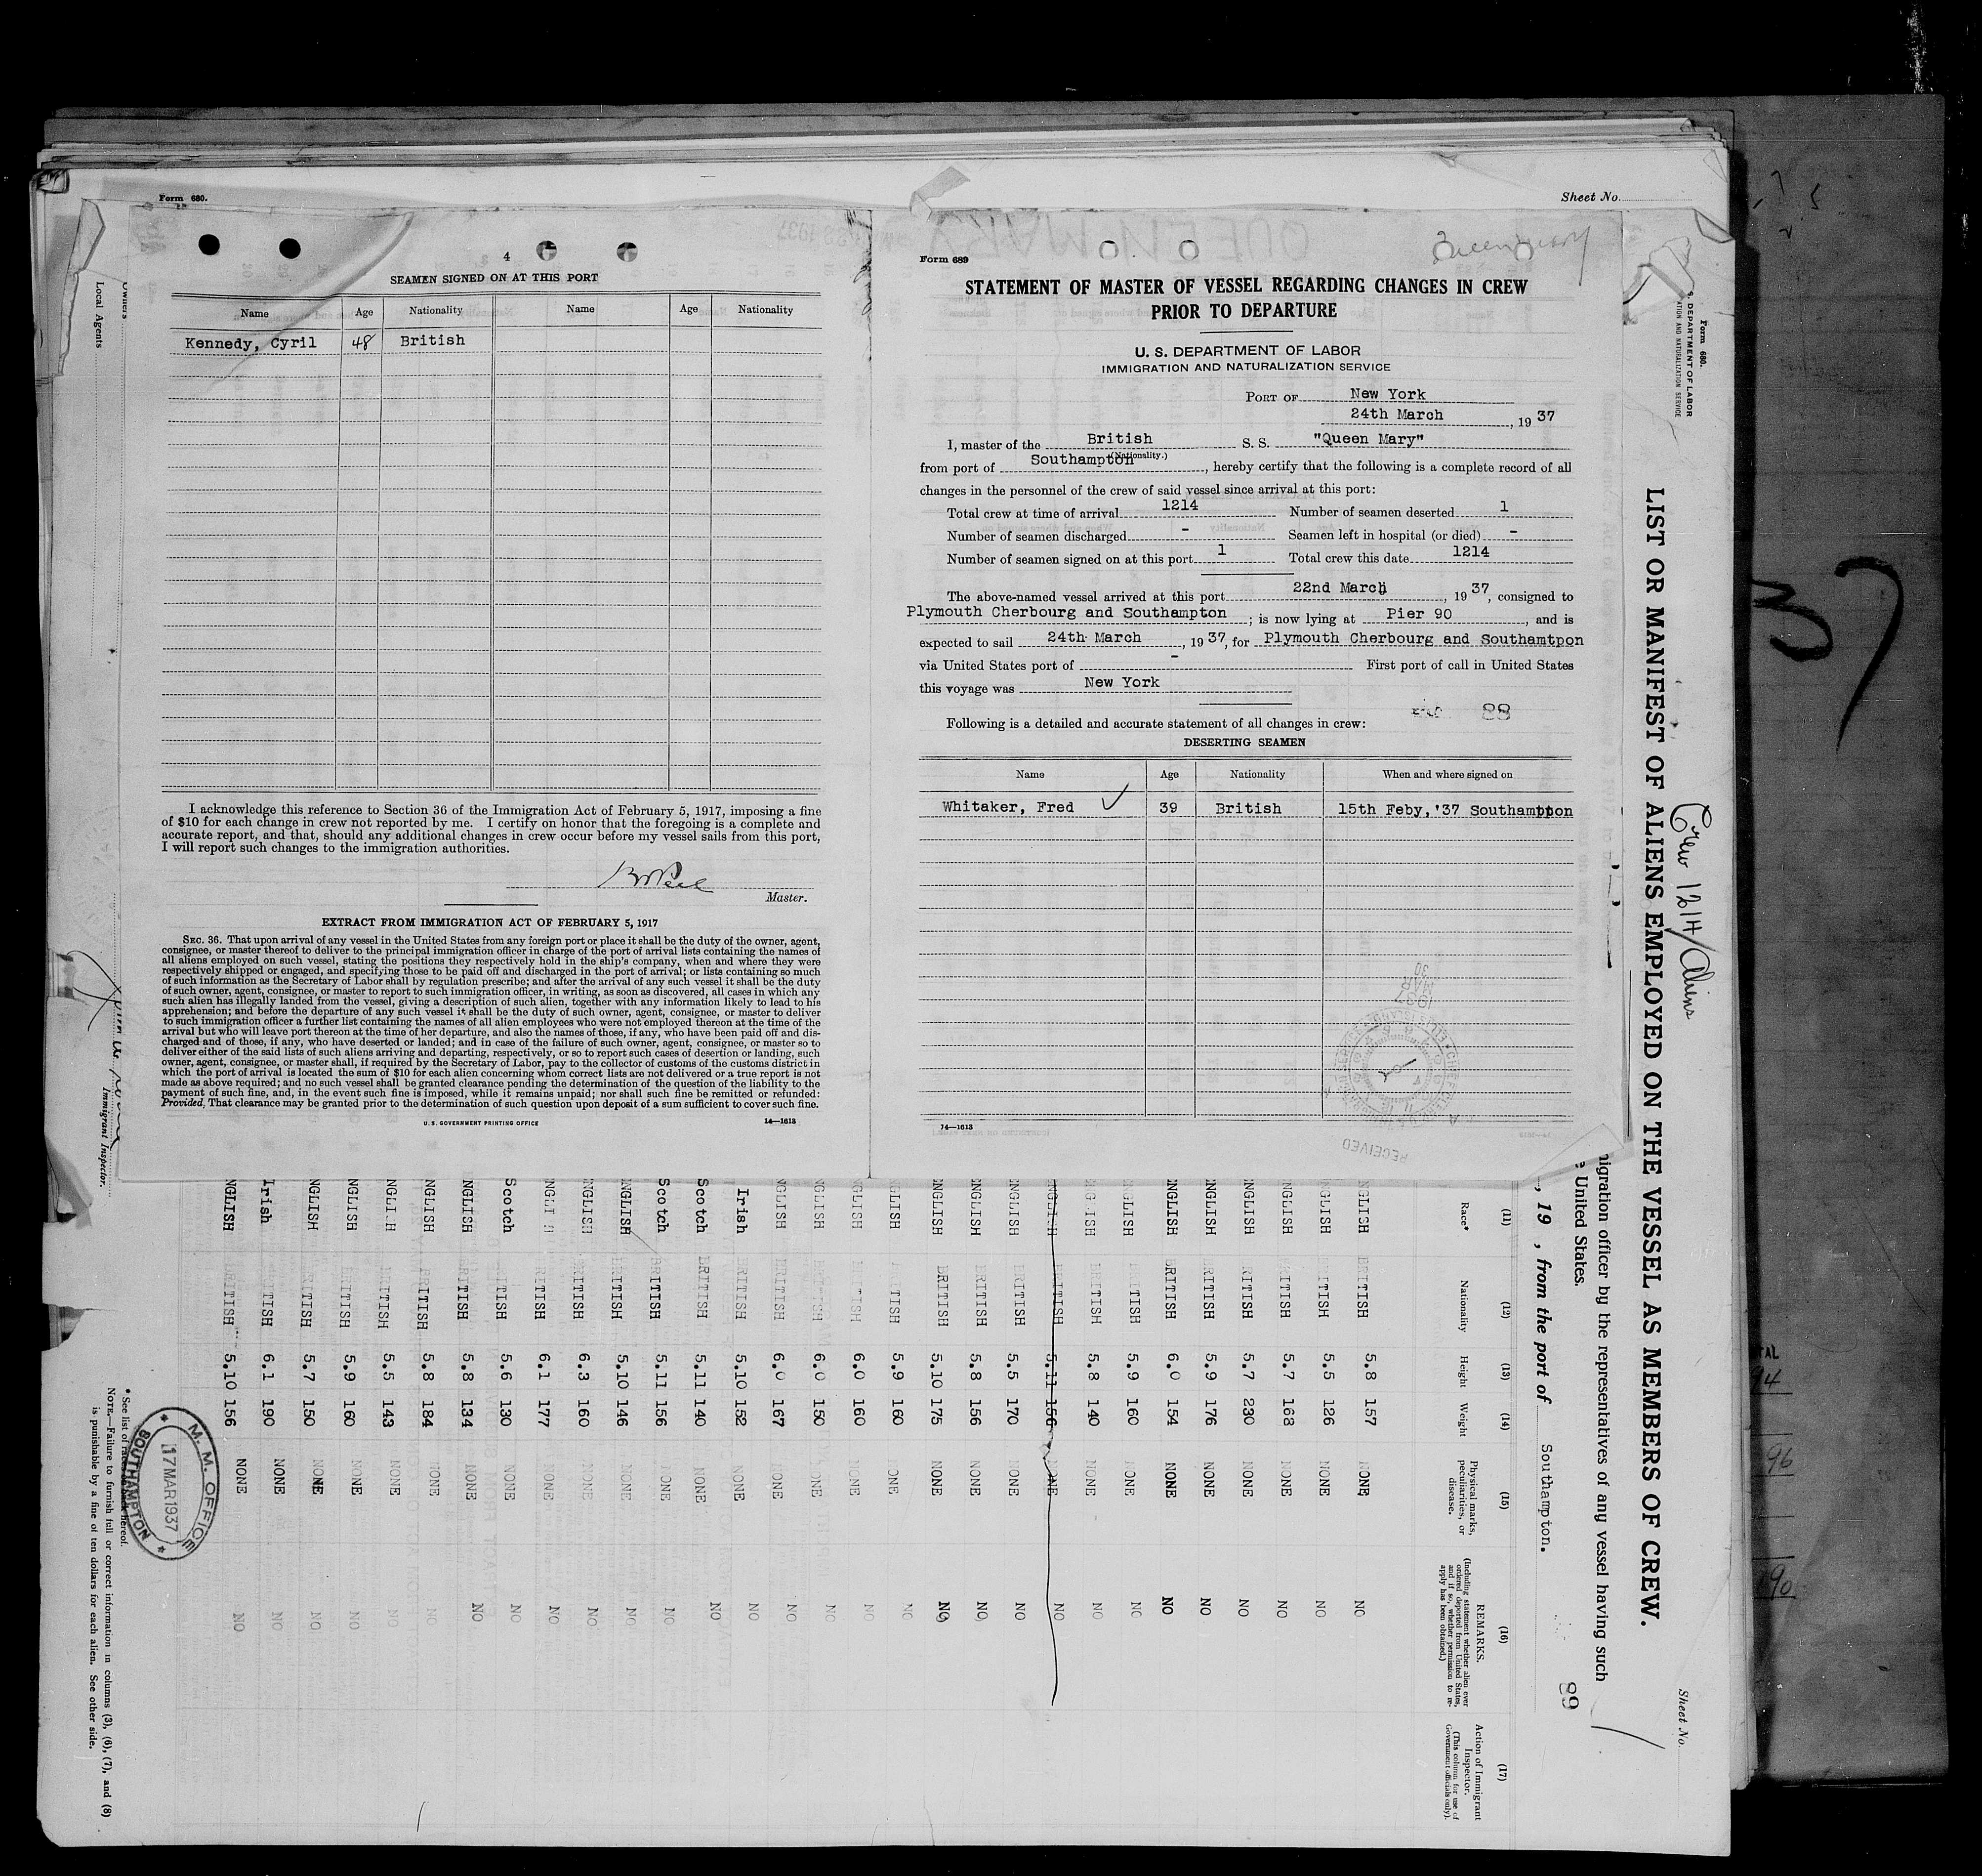 Form 680.
Sheet No.
4
SEAMEN SIGNED ON AT THIS PORT
Name Age Nationality Name Age Nationality
Kennedy, Cyril 48 British
I acknowledge this reference to Section 36 of the Immigration Act of February 5, 1917, imposing a fine
of $10 for each change in crew not reported by me. I certify on honor that the foregoing is a complete and
accurate report, and that, should any additional changes in crew occur before my vessel sails from this port,
I will report such changes to the immigration authorities.
Master.
EXTRACT FROM IMMIGRATION ACT OF FEBRUARY 5, 1917
SEC. 36. That upon arrival of any vessel in the United States from any foreign port or place it shall be the duty of the owner, agent,
consignee, or master thereof to deliver to the principal immigration officer in charge of the port of arrival lists containing the names of
all aliens employed on such vessel, stating the positions they respectively hold in the ship's company, when and where they were
respectively shipped or engaged, and specifying those to be paid off and discharged in the port of arrival; or lists containing so much
of such information as the Secretary of Labor shall by regulation prescribe; and after the arrival of any such vessel it shall be the duty
of such owner, agent, consignee, or master to report to such immigration officer, in writing, as soon as discovered, all cases in which any
such alien has illegally landed from the vessel, giving a description of such alien, together with any information likely to lead to his
apprehension; and before the departure of any such vessel it shall be the duty of such owner, agent, consignee, or master to deliver
to such immigration officer a further list containing the names of all alien employees who were not employed thereon at the time of the
arrival but who will leave port thereon at the time of her departure, and also the names of those, if any, who have been paid off and dis-
charged and of those, if any, who have deserted or landed; and in case of the failure of such owner, agent, consignee, or master so to
deliver either of the said lists of such aliens arriving and departing, respectively, or so to report such cases of desertion or landing, such
owner, agent, consignee, or master shall, if required by the Secretary of Labor, pay to the collector of customs of the customs district in
which the port of arrival is located the sum of $10 for each alien concerning whom correct lists are not delivered or a true report is not
made as above required; and no such vessel shall be granted clearance pending the determination of the question of the liability to the
payment of such fine, and, in the event such fine is imposed, while it remains unpaid; nor shall such fine be remitted or refunded:
Provided, That clearance may be granted prior to the determination of such question upon deposit of a sum sufficient to cover such fine.
U. S. GOVERNMENT PRINTING OFFICE 14—1613
Form 689
Queen Mary
STATEMENT OF MASTER OF VESSEL REGARDING CHANGES IN CREW
PRIOR TO DEPARTURE
U. S. DEPARTMENT OF LABOR
IMMIGRATION AND NATURALIZATION SERVICE
PORT OF New York
24th March, 1937
I, master of the British S. S. "Queen Mary"
(Nationality.)
from port of Southampton, hereby certify that the following is a complete record of all
changes in the personnel of the crew of said vessel since arrival at this port:
Total crew at time of arrival 1214 Number of seamen deserted 1
Number of seamen discharged - Seamen left in hospital (or died) -
Number of seamen signed on at this port 1 Total crew this date 1214
The above-named vessel arrived at this port 22nd March, 1937, consigned to
Plymouth Cherbourg and Southampton; is now lying at Pier 90, and is
expected to sail 24th March, 1937, for Plymouth Cherbourg and Southamtpon
via United States port of - First port of call in United States
this voyage was New York
88
Following is a detailed and accurate statement of all changes in crew:
DESERTING SEAMEN
Name Age Nationality When and where signed on
Whitaker, Fred ✓ 39 British 15th Feby,'37 Southampton
MAR 30
1937
RECEIVED
14—1613
Form 680.
DEPARTMENT OF LABOR
ATION AND NATURALIZATION SERVICE
LIST OR MANIFEST OF ALIENS EMPLOYED ON THE VESSEL AS MEMBERS OF CREW.
Crew 1214/Aliens
Sheet No.
migration officer by the representatives of any vessel having such
United States.
, 19 , from the port of Southampton.
89
(11) (12) (13) (14) (15) (16) (17)
Race* Nationality Height Weight Physical marks, peculiarities, or disease. REMARKS. (Including statement whether alien ever ordered deported from United States, and if so, whether permission to re-apply has been obtained.) Action of Immigrant Inspector. (This column for use of Government officials only).
NGLISH BRITISH 5.8 157 NONE NO
NGLISH ITISH 5.5 126 NONE NO
NGLISH ITISH 5.7 163 NONE NO
NGLISH RITISH 5.7 230 NONE NO
NGLISH RITISH 5.9 176 NONE NO
NGLISH BRITISH 6.0 154 NONE NO
NGLISH ITISH 5.9 160 NONE NO
NG ISH BRITISH 5.8 140 NONE NO
NGLISH RITISH 5.11 156 NONE NO
NGLISH BRITISH 5.5 170 NONE NO
NGLISH BRITISH 5.8 156 NONE NO
NGLISH BRITISH 5.10 175 NONE NO
GLISH TISH 5.9 160 ONE NO
GLISH TISH 6.0 160 NONE NO
NGLISH BRITISH 6.0 150 ONE NO
NGLISH BRITISH 6.0 167 NONE NO
Irish RITISH 5.10 152 NONE NO
Scotch BRITISH 5.11 140 NONE NO
Scotch BRITISH 5.11 156 NONE NO
NGLISH RITISH 5.10 146 NONE NO
NGLISH RITISH 6.3 160 NONE NO
NGLI H RITISH 6.1 177 NONE NO
Scotch TISH 5.6 130 NONE NO
NGLISH RITISH 5.8 134 NONE NO
NGLISH BRITISH 5.8 184 NONE NO
NGLI H RITISH 5.5 143 NONE NO
NGLISH BRITISH 5.9 160 NONE NO
NGLISH RITISH 5.7 150 NONE NO
Irish RITISH 6.1 190 NONE NO
NGLISH BRITISH 5.10 156 NONE NO
M. M. OFFICE
17 MAR 1937
SOUTHAMPTON
* See list of races hereof.
NOTE.—Failure to furnish full or correct information in columns (3), (6), (7), and (8)
is punishable by a fine of ten dollars for each alien. See other side.
Immigrant Inspector.
Owners
Local Agents
37
TAL
94
96
190